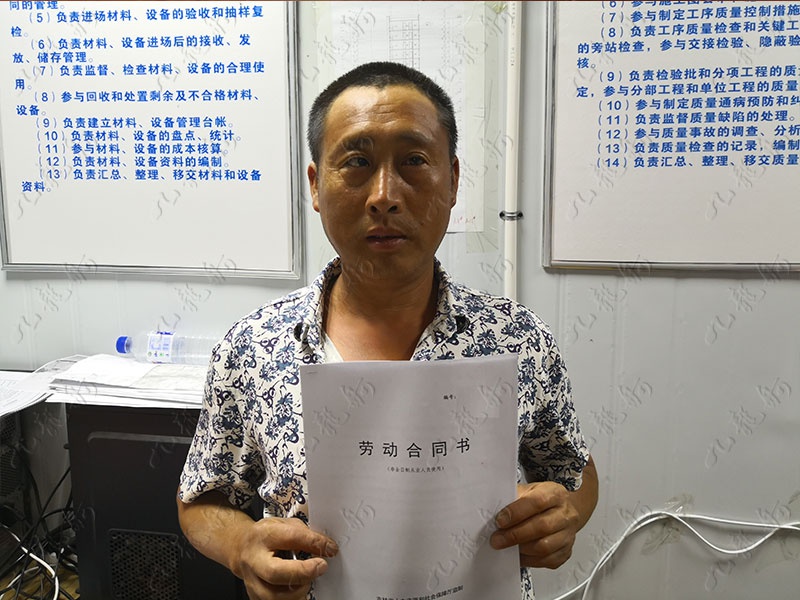 同的管理。
（5）负责进场材料、设备的验收和抽样复
检。
（6）负责材料、设备进场后的接收、发
放、储存管理。
（7）负责监督、检查材料、设备的合理使
用。
（8）参与回收和处置剩余及不合格材料、
设备。
（9）负责建立材料、设备管理台帐。
（10）负责材料、设备的盘点、统计。
（11）参与材料、设备的成本核算。
（12）负责材料、设备资料的编制。
（13）负责汇总、整理、移交材料和设备
资料。
（7）参与制定工序质量控制措施
（8）负责工序质量检查和关键工
的旁站检查，参与交接检验、隐蔽验
核。
（9）负责检验批和分项工程的质量
定，参与分部工程和单位工程的质量
（10）参与制定质量通病预防和纠
（11）负责监督质量缺陷的处理。
（12）参与质量事故的调查、分析
（13）负责质量检查的记录，编制
（14）负责汇总、整理、移交质量
编号：
劳动合同书